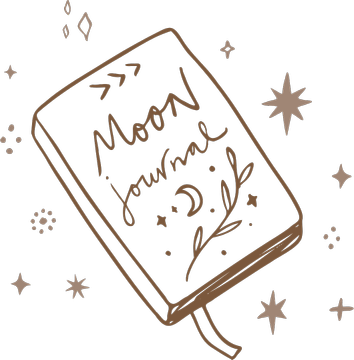 Moon
journal